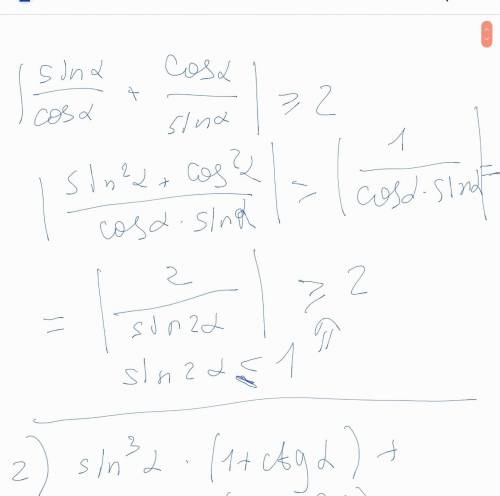 | sinα/cosα + cosα/sinα | ⩾ 2
| (sin²α + cos²α)/(cosα · sinα) | = | 1/(cosα · sinα) | =
= | 2/sin2α | ⩾ 2
sin2α ≤ 1 ⇑
2) sin³α · (1+ctgα) +